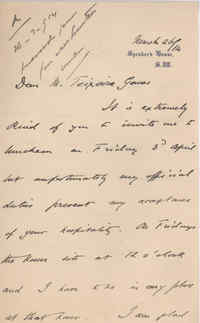 March 26/14
Speaker's House,
S.W.
Dear M. Teixeira Gomes
It is extremely
kind of you to invite me to
luncheon on Friday 3rd April
but unfortunately my official
duties prevent my acceptance
of your hospitality. On Fridays
the House sits at 12 o'clock
and I have to be in my place
at that hour. I am glad